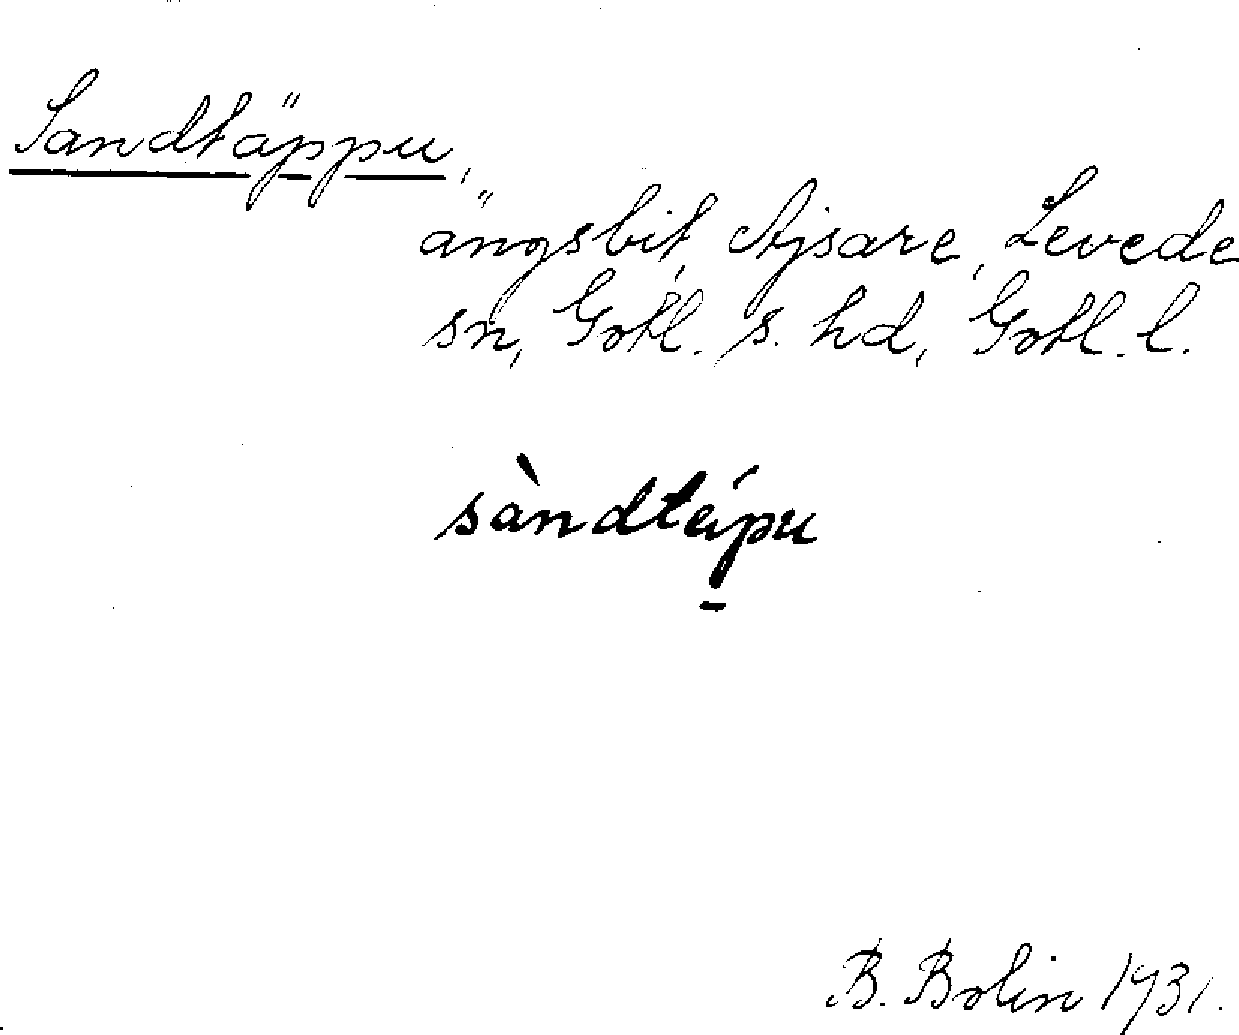 Sandtäppu,
ängsbit, Ajsare, Levede
sn, Gotl. s. hd, Gotl. l.
sàndtépu
B. Bolin 1931.